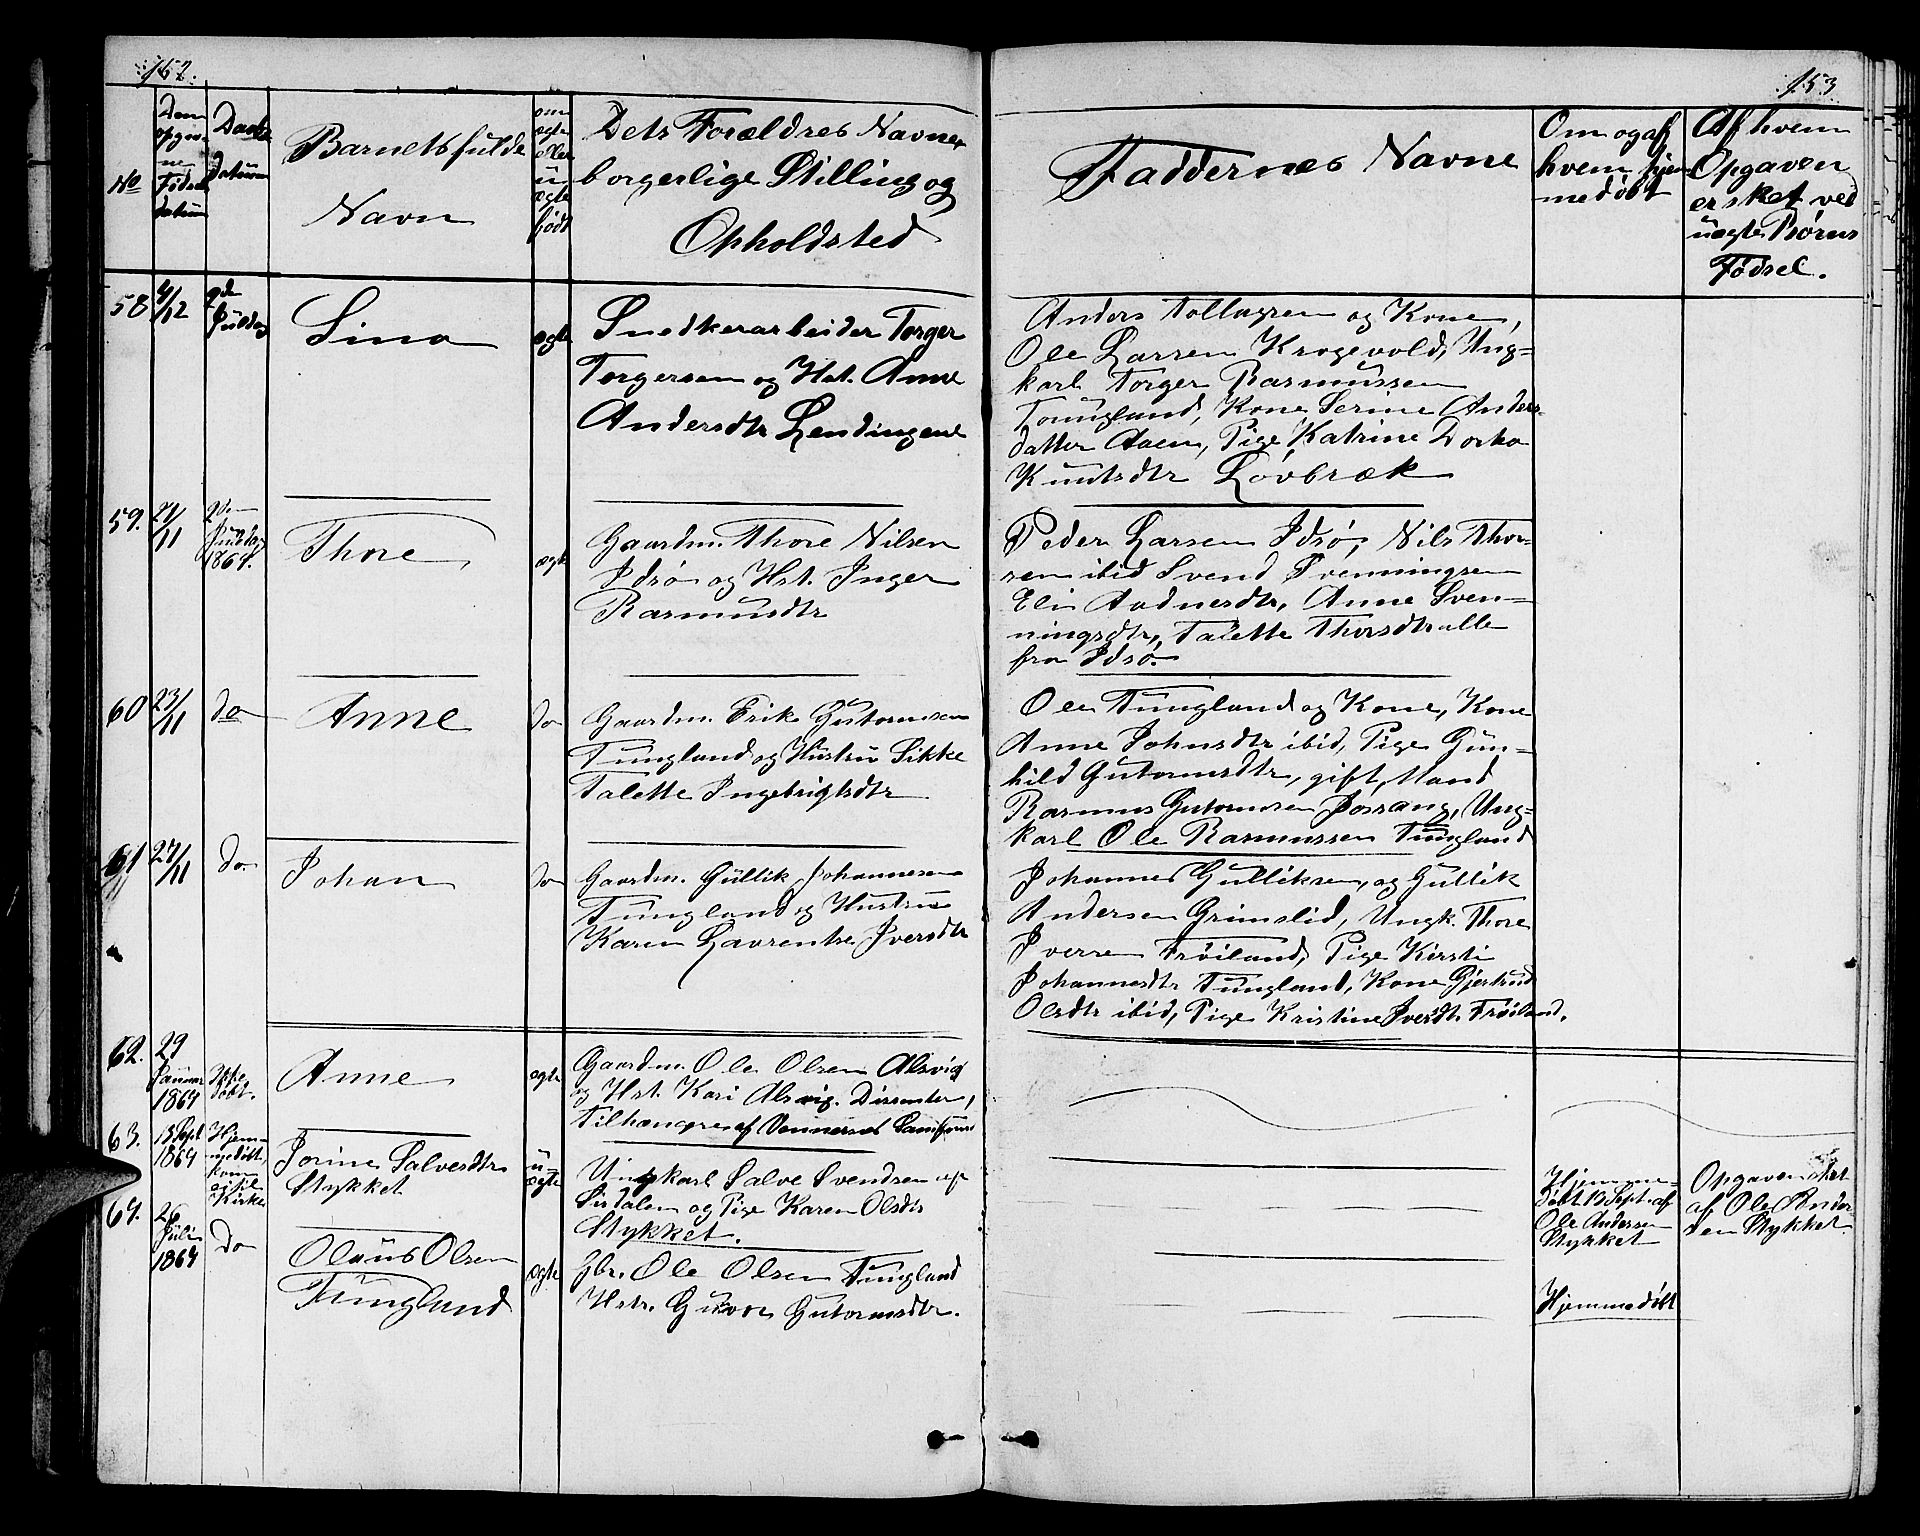 152.
No
Den
opgiv
ne
Fødsel
datum
Daabs
datum
Barnets fulde
Navn
om
ægte
eller
u
ægte
født
Dets Forældres Navne,
borgerlige Stilling og
Opholdsted
58
4/12
2de
Juledag
Sina
ægte
Snedkerarbeider Torger
Torgersen og Hst. Anne
Andersdtr Lendingene
59.
21/11
2den
Juledag
1864.
Thore
ægte
Gaardm. Thore Nilsen
Idsø og Hst. Inger
Rasmusdtr
60
23/11
do
Anne
do
Gaardm. Erik Gutormsen
Tungland og Hustru Sikke
Talette Ingebrigtsdtr
61
27/11
do.
Johan
do
Gaardm. Gullik Johannesen
Tungland og Hustru
Karen Lavrentse Iversdtr
62.
29
Januar
1864
Ikke
døbt.
Anne
ægte
Gaardm. Ole Olsen Alsvig
og Hst. Kari Alsvig. Dissenter,
Tilhængre af Vennernes Samfund
63.
13 Sept
1864
Hjem-
medøbt,
kom
ei til
Kirke
Jorine Salvesdtr
Stykket
u-
ægte
Ungkarl Salve Svendsen af
Sirdalen og Pige Karen Olsdtr
Stykket.
64.
26
Juli
1864
Do
Olaus Olsen
Tungland
ægte
Gbr. Ole Olsen Tungland
Hstr. Guroe Gutormsdtr.
153
Faddernes Navne
Om og af
hvem hjem
medøbt
Af hvem
Opgaven
er sket ved
uægte Børns
Fødsel.
Anders Tollagren og Kone,
Ole Larsen Krogevold, Ung-
karl Torger Rasmussen
Toungland, Kone Serine Anders-
datter Aaen, Pige Katrine Dorka
Knutsdtr Løvbræk
Peder Larsen Idsø, Nils Thor-
sen ibid Svend Svenningsen
Eli Aadnesdtr, Anne Sven-
ningsdtr, Talette Thorsdtr alle
fra Idsø.
Ole Tungland og Kone, Kone
Anne Johnsdtr ibid, Pige Gun-
hild Gutormsdtr, gift Mand
Rasmus Gutormsen Jossang, Ung-
karl Ole Rasmussen Tungland
Johannes Gulliksen, og Gullik
Andersen Grimslid, Ungk. Thore
Iversen Frøiland, Pige Kirsti
Johannesdtr Tungland, Kone Gjertrud
Olsdtr ibid, Pige Kristine Iversdt. Frøiland.
Hjemme-
døbt 13 Sept. af
Ole Andersen
Stykket
Opgaven sket
af Ole Ander-
sen Stykket
Hjemmedøbt